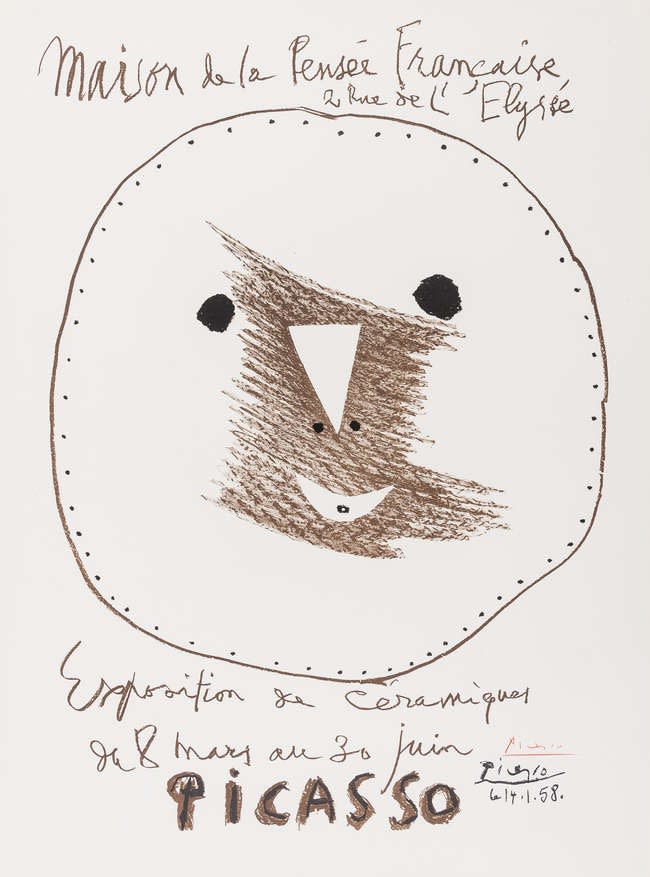 Maison de la Pensée Française
2 Rue de L'Elysée
Exposition de céramiques
du 8 mars au 30 juin
PICASSO
Picasso
Picasso
le 14.1.58.